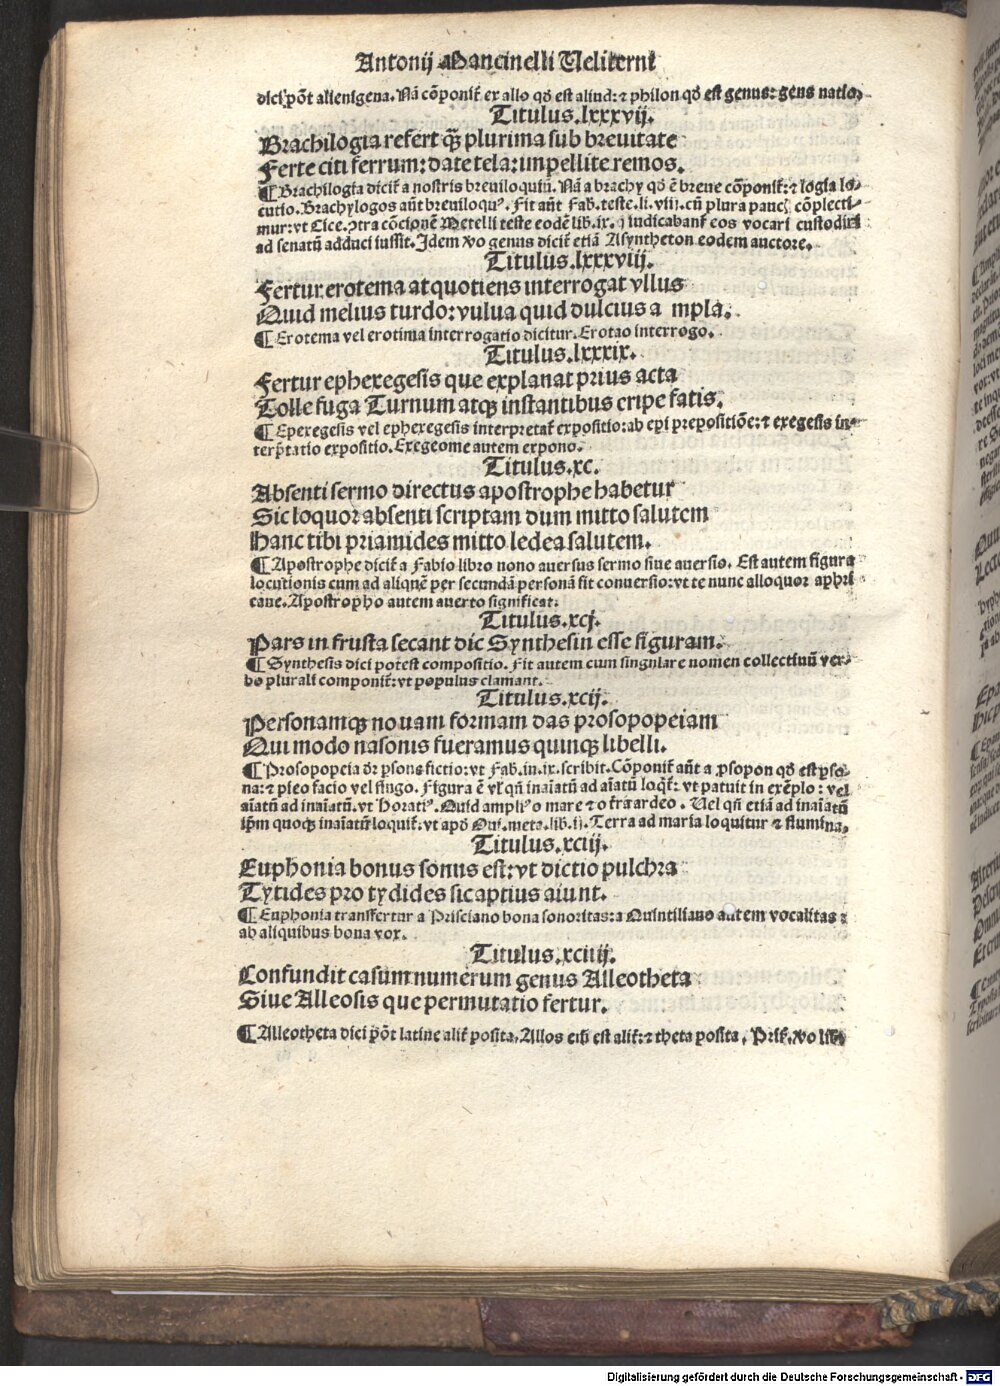 Antonij Mancinelli Veliterni
dici põt alienigena. Nã cõponit̃ ex allo qd̃ est aliud: ⁊ philon qd̃ est genus: gens natio.
Titulus.lxxxvij.
Brachilogia refert q̃ꝫ plurima sub breuitate
Ferte citi ferrum: date tela: impellite remos.
¶ Brachilogia dicit̃ a nostris breuiloquiũ. Nã a brachy qd̃ ẽ breue cõponit̃: ⁊ logia lo-
cutio. Brachylogos aũt breuiloquꝰ. Fit aũt Fab. teste. li. viij. cũ plura paucꝭ cõplecti-
mur: vt Cice. ꝯtra cõcionẽ Metelli teste eodẽ lib. ix. q iudicabant̃ eos vocari custodiri
ad senatũ adduci iussit. Idem ꝟo genus dicit̃ etiã Asyntheton eodem auctore.
Titulus.lxxxviij.
Fertur erotema at quotiens interrogat vllus
Quid melius turdo: vulua quid dulcius ampla.
¶ Erotema vel erotima interrogatio dicitur. Erotao interrogo.
Titulus.lxxxix.
Fertur ephexegesis que explanat prius acta
Tolle fuga Turnum atqꝫ instantibus eripe fatis.
¶ Epexegesis vel ephexegesis interpretat̃ expositio: ab epi prepositiõe: ⁊ exegesis in-
terp̃tatio expositio. Exegeome autem expono.
Titulus.xc.
Absenti sermo directus apostrophe habetur
Sic loquor absenti scriptam dum mitto salutem
Hanc tibi priamides mitto ledea salutem.
¶ Apostrophe dicit̃ a Fabio libro nono auersus sermo siue auersio. Est autem figura
locutionis cum ad aliquẽ per secundã personã fit conuersio: vt te nunc alloquor aphri
cane. Apostropho autem auerto significat.
Titulus.xcj.
Pars in frusta secant dic Synthesin esse figuram.
¶ Synthesis dici potest compositio. Fit autem cum singulare nomen collectiuũ ver-
bo plurali componit̃: vt populus clamant.
Titulus.xcij.
Personamqꝫ nouam formam das prosopopeiam
Qui modo nasonis fueramus quinqꝫ libelli.
¶ Prosopopeia dr̃ ꝑsone fictio: vt Fab. in. ix. scribit. Cõponit̃ aũt a ꝓsopon qd̃ est ꝑso-
na: ⁊ pieo facio vel fingo. Figura ẽ vr̃ qñ inaiatũ ad aiatũ loqt̃: vt patuit in exẽplo: vel
aiatũ ad inaiatũ. vt Horatiꝰ. Quid ampliꝰ o mare ⁊ o terra ardeo. Uel qñ etiã ad inaiatũ
ip̃m quoqꝫ inaiatũ loquit̃: vt apd̃ Oui. meta. lib. ij. Terra ad maria loquitur ⁊ flumina.
Titulus.xciij.
Euphonia bonus sonus est: vt dictio pulchra
Tytides pro tydides sic aptius aiunt.
¶ Euphonia transfertur a Prisciano bona sonoritas: a Quintiliano autem vocalitas:
ab aliquibus bona vox.
Titulus.xciiij.
Confundit casum numerum genus Alleotheta
Siue Alleosis que permutatio fertur.
¶ Alleotheta dici põt latine alit̃ posita. Allos eñ est alit̃: ⁊ theta posita. Pris. ꝟo lib.
Digitalisierung gefördert durch die Deutsche Forschungsgemeinschaft - DFG